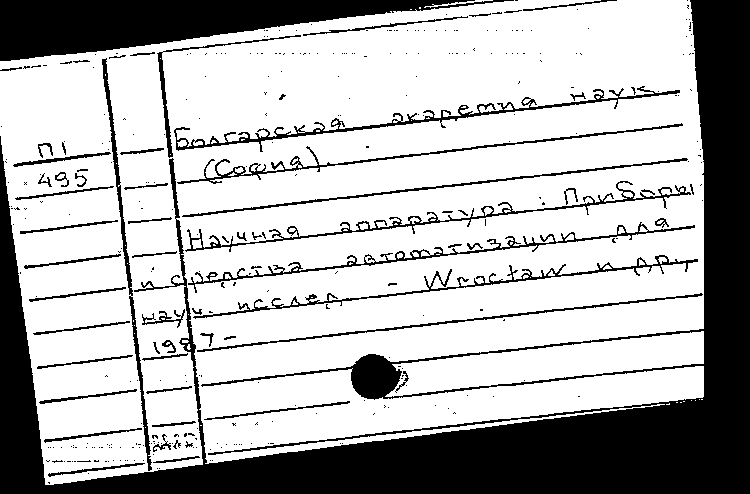 П1
495
Болгарская академия наук
(София).
Научная аппаратура : Приборы
и средства автоматизации для
науч. исслед. - Wrocław и др.,
1987-